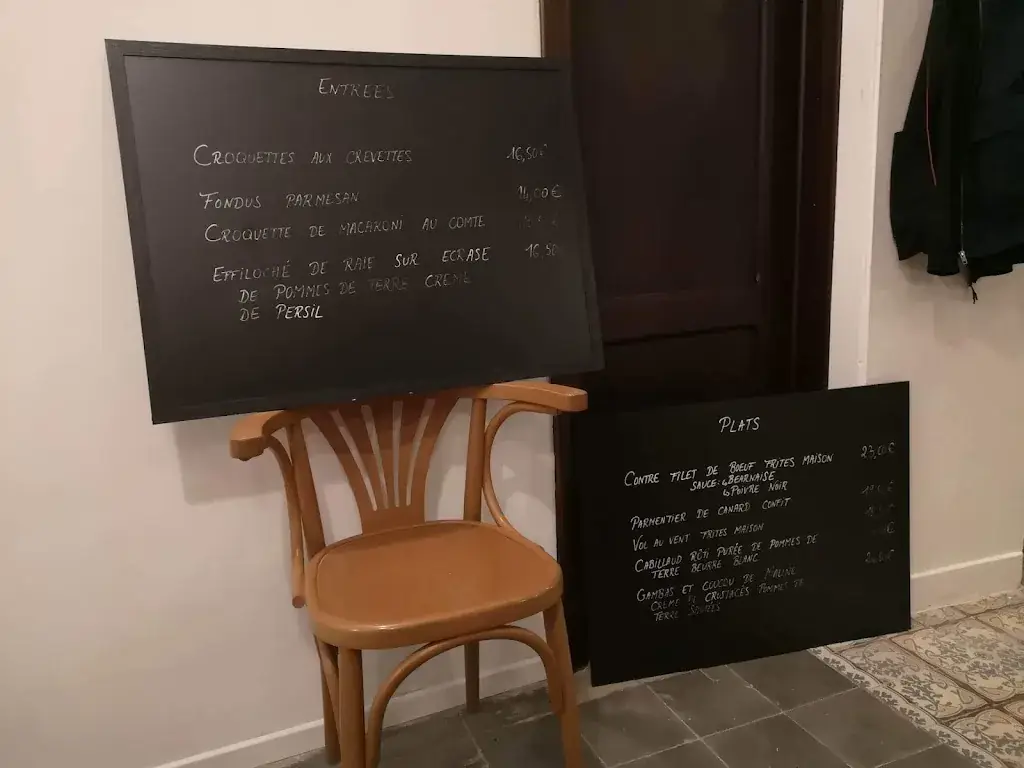 ENTREES
CROQUETTES AUX CREVETTES 16,50€
FONDUS PARMESAN 14,00€
CROQUETTE DE MACARONI AU COMTE
EFFILOCHÉ DE RAIE SUR ECRASE 16.50
DE POMMES DE TERRE CREME
DE PERSIL
PLATS
CONTRE FILET DE BOEUF FRITES MAISON 23,00€
SAUCE: ↳BEARNAISE
↳POIVRE NOIR
PARMENTIER DE CANARD CONFIT
VOL AU VENT FRITES MAISON
CABILLAUD RÔTI PURÉE DE POMMES DE
TERRE BEURRE BLANC
GAMBAS ET COUCOU DE MALINE
CREME DE CRUSTACÉS POMMES DE
TERRE